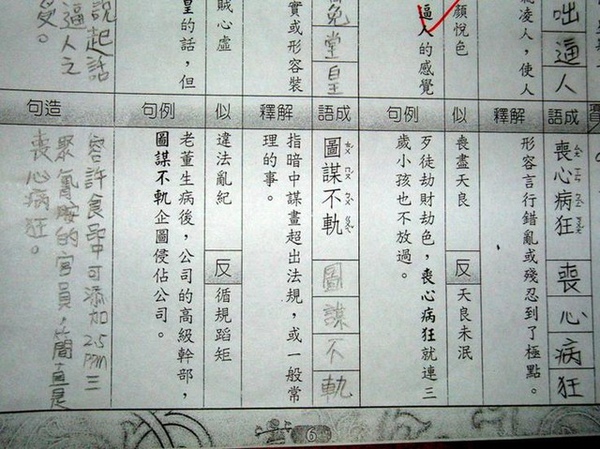 咄
逼
人
凌人，使人
顏悅色
逼人的感覺
免
堂
皇
實或形容裝
賊心虛
皇的話，但
說起話
逼人之
受。
成語
解釋
似
例句
成語
解釋
似
例句
造句
喪心病狂
喪
心
病
狂
形容言行錯亂或殘忍到了極點。
喪盡天良
反
天良未泯
歹徒劫財劫色，喪心病狂就連三
歲小孩也不放過。
圖謀不軌
圖
謀
不
軌
指暗中謀畫超出法規，或一般常
理的事。
違法亂紀
反
循規蹈矩
老董生病後，公司的高級幹部，
圖謀不軌企圖侵佔公司。
容許食品中可添加2.5ppm三
聚氰胺的官員，簡直是
喪心病狂。
6